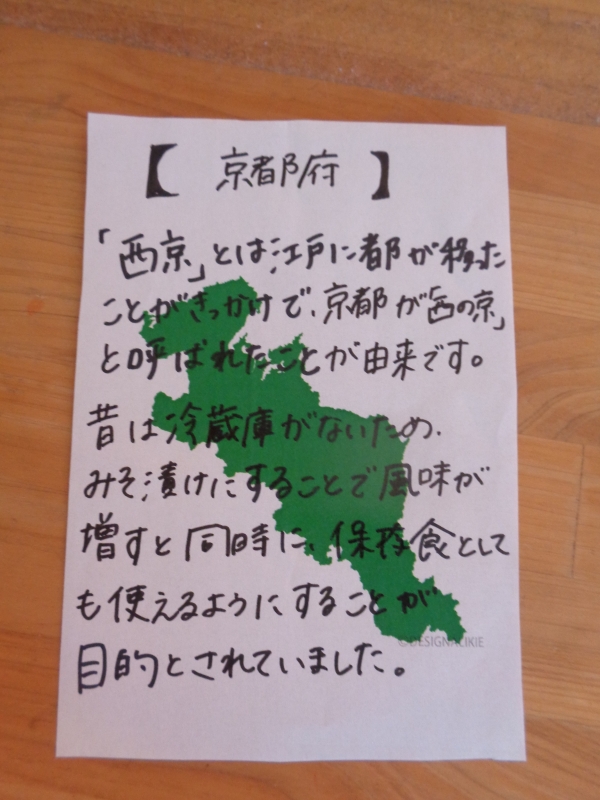 【 京都府 】
「西京」とは、江戸に都が移った
ことがきっかけで、京都が「西の京」
と呼ばれたことが由来です。
昔は冷蔵庫がないため、
みそ漬けにすることで風味が
増すと同時に、保存食として
も使えるようにすることが
目的とされていました。